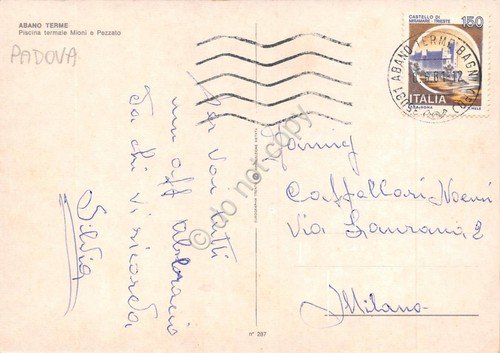 ABANO TERME
Piscina termale Mioni e Pezzato
PADOVA
Per voi tutti
un aff. abbraccio
da chi vi ricorda
Silvia
CASTELLO DI
MIRAMARE - TRIESTE
150
ITALIA
35031 ABANO TERME BAGNI
Caffallari Noemi
Via 2
Milano
n° 287
do not copy